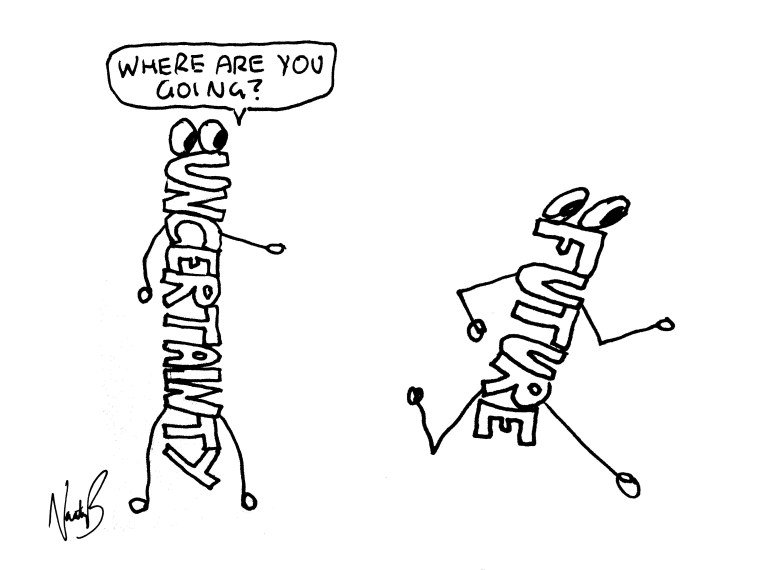 WHERE ARE YOU
GOING?
UNCERTAINTY
FUTURE